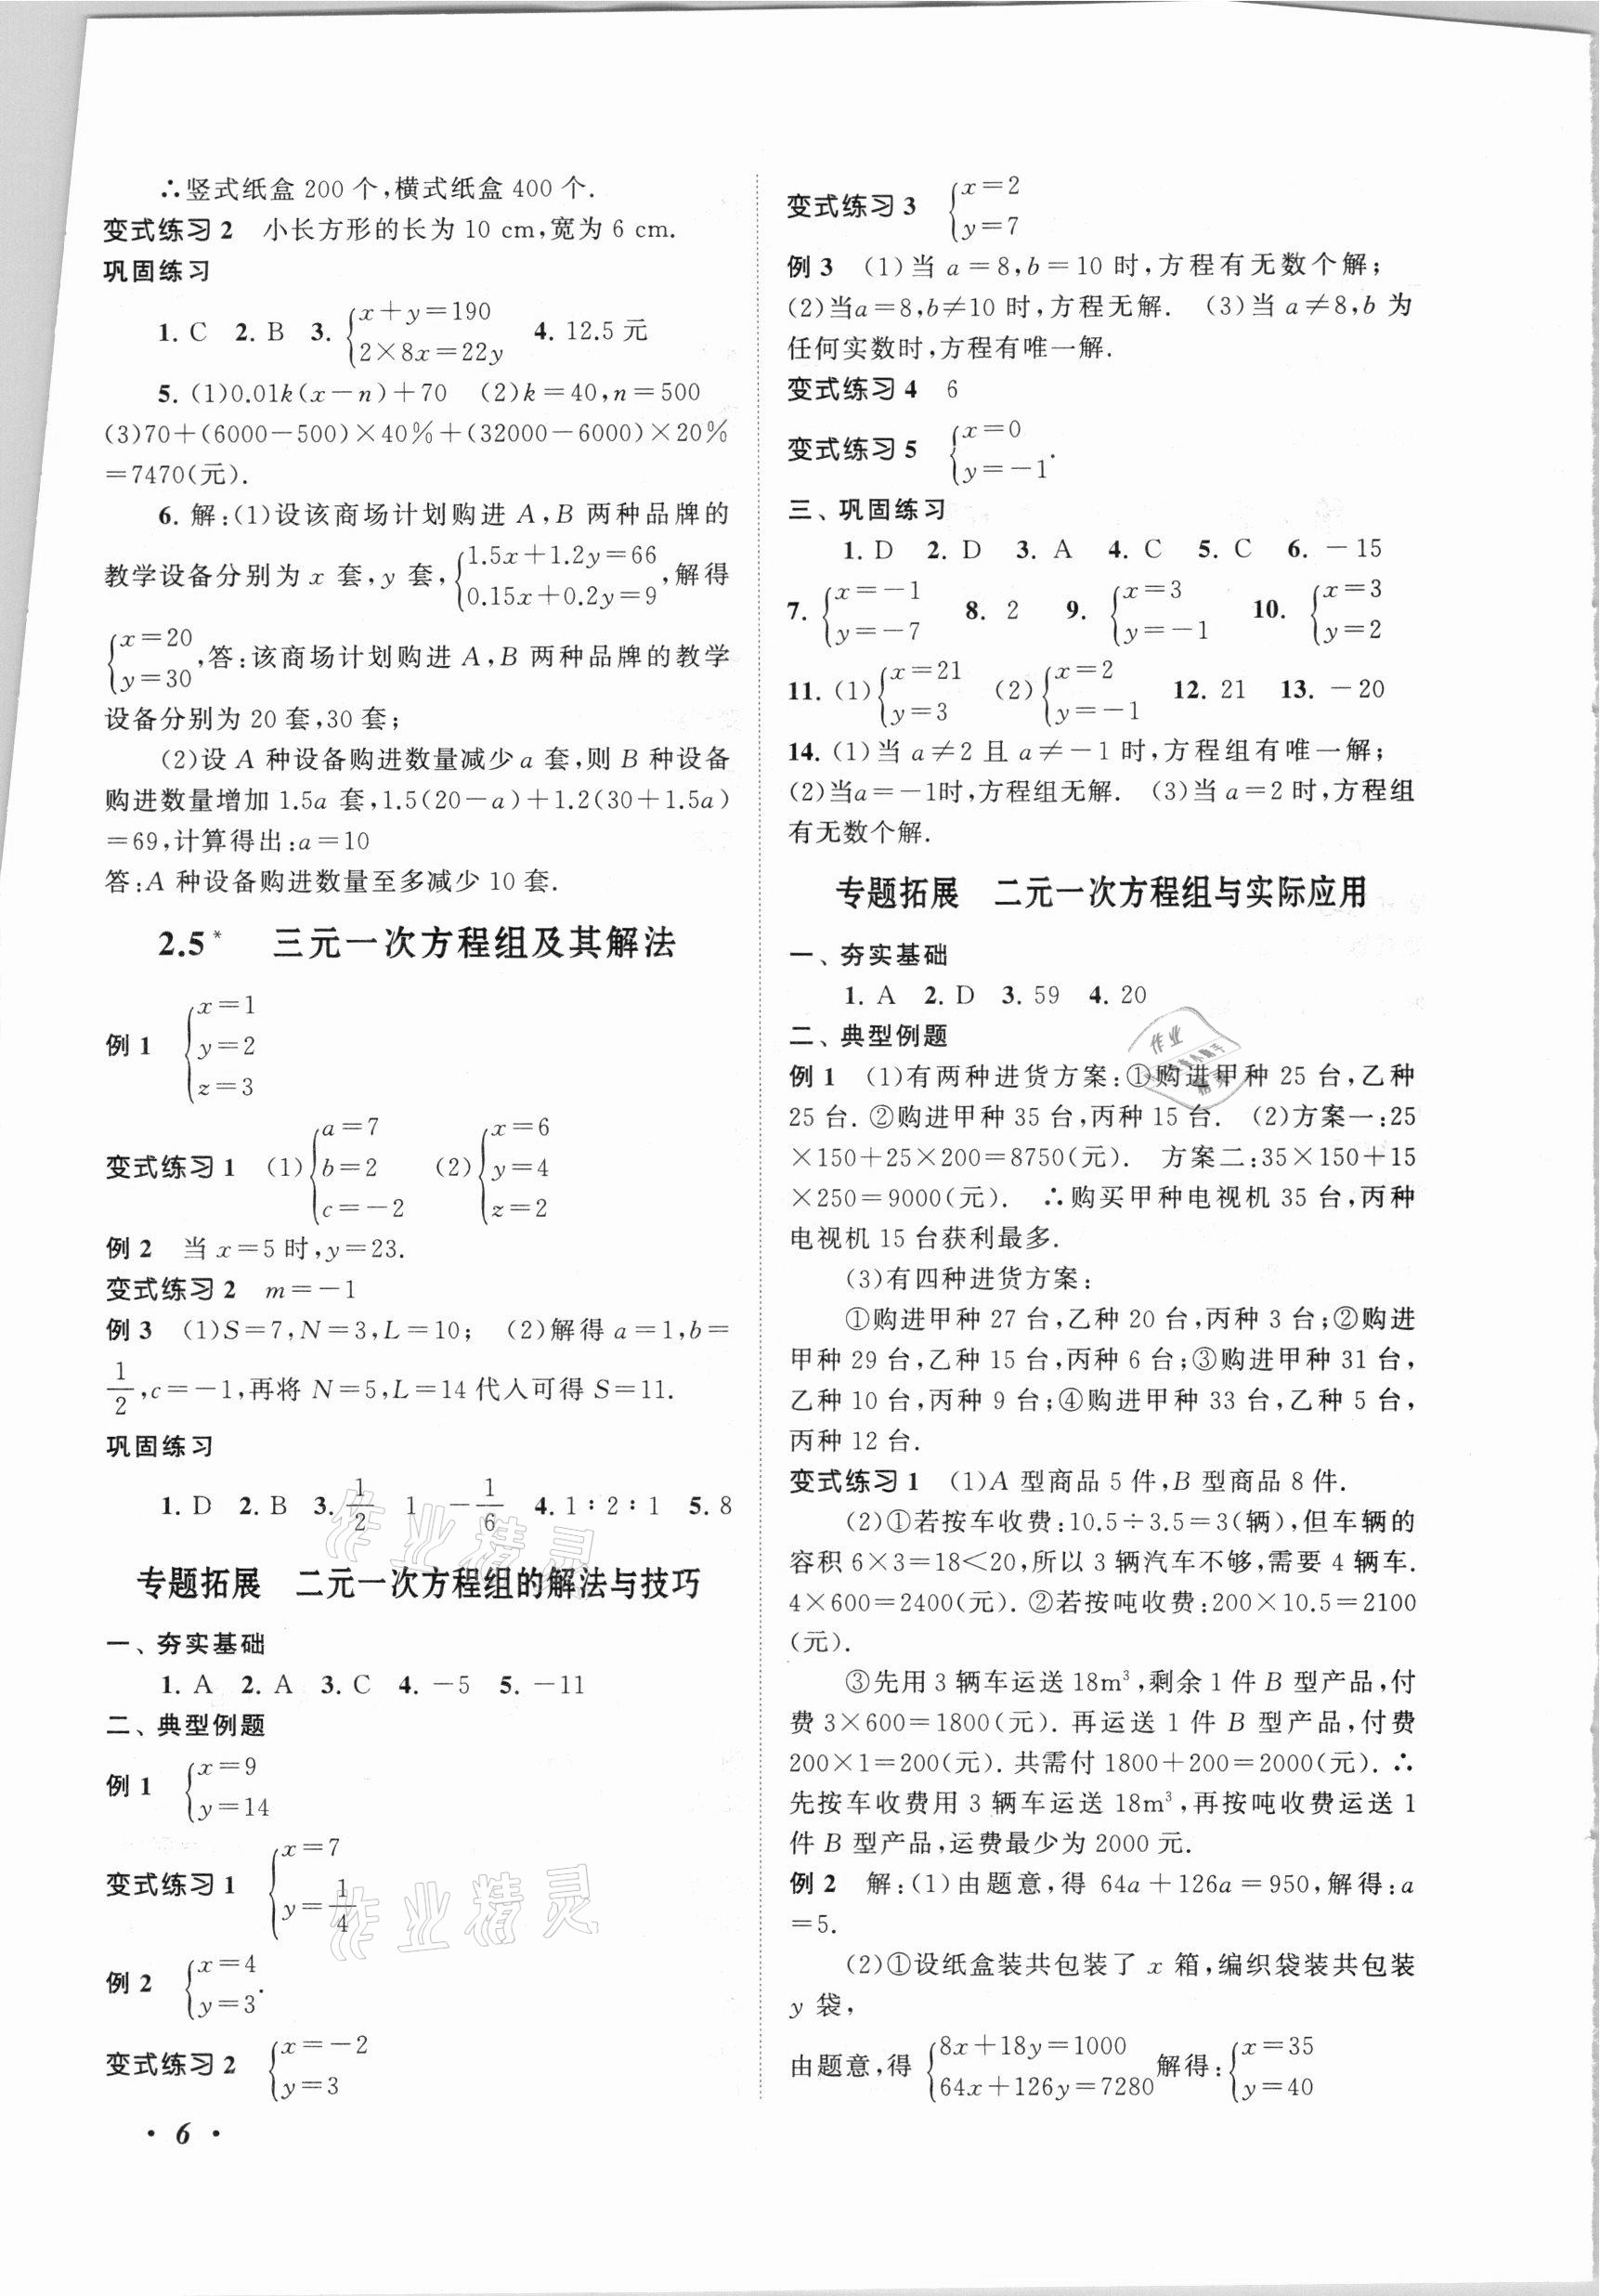 ∴竖式纸盒 200 个,横式纸盒 400 个.
变式练习 2 小长方形的长为 10 cm,宽为 6 cm.
巩固练习
1. C 2. B 3. {x+y=190 2×8x=22y 4. 12.5 元
5. (1)0.01k(x-n)+70 (2)k=40,n=500
(3)70+(6000-500)×40%+(32000-6000)×20%
=7470(元).
6. 解:(1)设该商场计划购进 A,B 两种品牌的
教学设备分别为 x 套,y 套,{1.5x+1.2y=66 0.15x+0.2y=9,解得
{x=20 y=30,答:该商场计划购进 A,B 两种品牌的教学
设备分别为 20 套,30 套;
(2)设 A 种设备购进数量减少 a 套,则 B 种设备
购进数量增加 1.5a 套,1.5(20-a)+1.2(30+1.5a)
=69,计算得出:a=10
答:A 种设备购进数量至多减少 10 套.
2.5* 三元一次方程组及其解法
例 1 {x=1 y=2 z=3
变式练习 1 (1){a=7 b=2 c=-2 (2){x=6 y=4 z=2
例 2 当 x=5 时,y=23.
变式练习 2 m=-1
例 3 (1)S=7,N=3,L=10; (2)解得 a=1,b=
1/2,c=-1,再将 N=5,L=14 代人可得 S=11.
巩固练习
1. D 2. B 3. 1/2 1 -1/6 4. 1∶2∶1 5. 8
专题拓展 二元一次方程组的解法与技巧
一、夯实基础
1. A 2. A 3. C 4. -5 5. -11
二、典型例题
例 1 {x=9 y=14
变式练习 1 {x=7 y=1/4
例 2 {x=4 y=3.
变式练习 2 {x=-2 y=3
· 6 ·
变式练习 3 {x=2 y=7
例 3 (1)当 a=8,b=10 时,方程有无数个解;
(2)当a=8,b≠10 时,方程无解. (3)当 a≠8,b 为
任何实数时,方程有唯一解.
变式练习 4 6
变式练习 5 {x=0 y=-1.
三、巩固练习
1. D 2. D 3. A 4. C 5. C 6. -15
7. {x=-1 y=-7 8. 2 9. {x=3 y=-1 10. {x=3 y=2
11. (1){x=21 y=3 (2){x=2 y=-1 12. 21 13. -20
14. (1)当 a≠2 且 a≠-1 时,方程组有唯一解;
(2)当a=-1时,方程组无解. (3)当 a=2 时,方程组
有无数个解.
专题拓展 二元一次方程组与实际应用
一、夯实基础
1. A 2. D 3. 59 4. 20
二、典型例题
例 1 (1)有两种进货方案:①购进甲种 25 台,乙种
25 台.②购进甲种 35 台,丙种 15 台. (2)方案一:25
×150+25×200=8750(元). 方案二:35×150+15
×250=9000(元). ∴购买甲种电视机 35 台,丙种
电视机 15 台获利最多.
(3)有四种进货方案:
①购进甲种 27 台,乙种 20 台,丙种 3 台;②购进
甲种 29 台,乙种 15 台,丙种 6 台;③购进甲种 31 台,
乙种 10 台,丙种 9 台;④购进甲种 33 台,乙种 5 台,
丙种 12 台.
变式练习 1 (1)A 型商品 5 件,B 型商品 8 件.
(2)①若按车收费:10.5÷3.5=3(辆),但车辆的
容积 6×3=18<20,所以 3 辆汽车不够,需要 4 辆车.
4×600=2400(元).②若按吨收费:200×10.5=2100
(元).
③先用 3 辆车运送 18m³,剩余 1 件 B 型产品,付
费 3×600=1800(元). 再运送 1 件 B 型产品,付费
200×1=200(元). 共需付 1800+200=2000(元). ∴
先按车收费用 3 辆车运送 18m³,再按吨收费运送 1
件 B 型产品,运费最少为 2000 元.
例 2 解:(1)由题意,得 64a+126a=950,解得:a
=5.
(2)①设纸盒装共包装了 x 箱,编织袋装共包装
y 袋,
由题意,得 {8x+18y=1000 64x+126y=7280 解得:{x=35 y=40
作业精灵
作业精灵